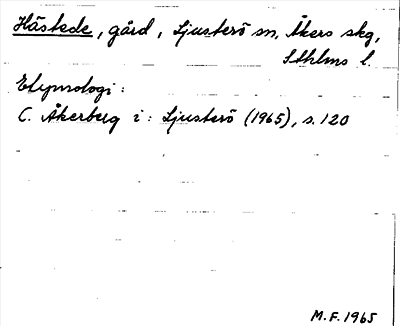 Hästede, gård, Ljusterö sn, Åkers skg,
Sthlms l.
Etymologi:
C. Åkerberg i: Ljusterö (1965), s. 120
M.F. 1965